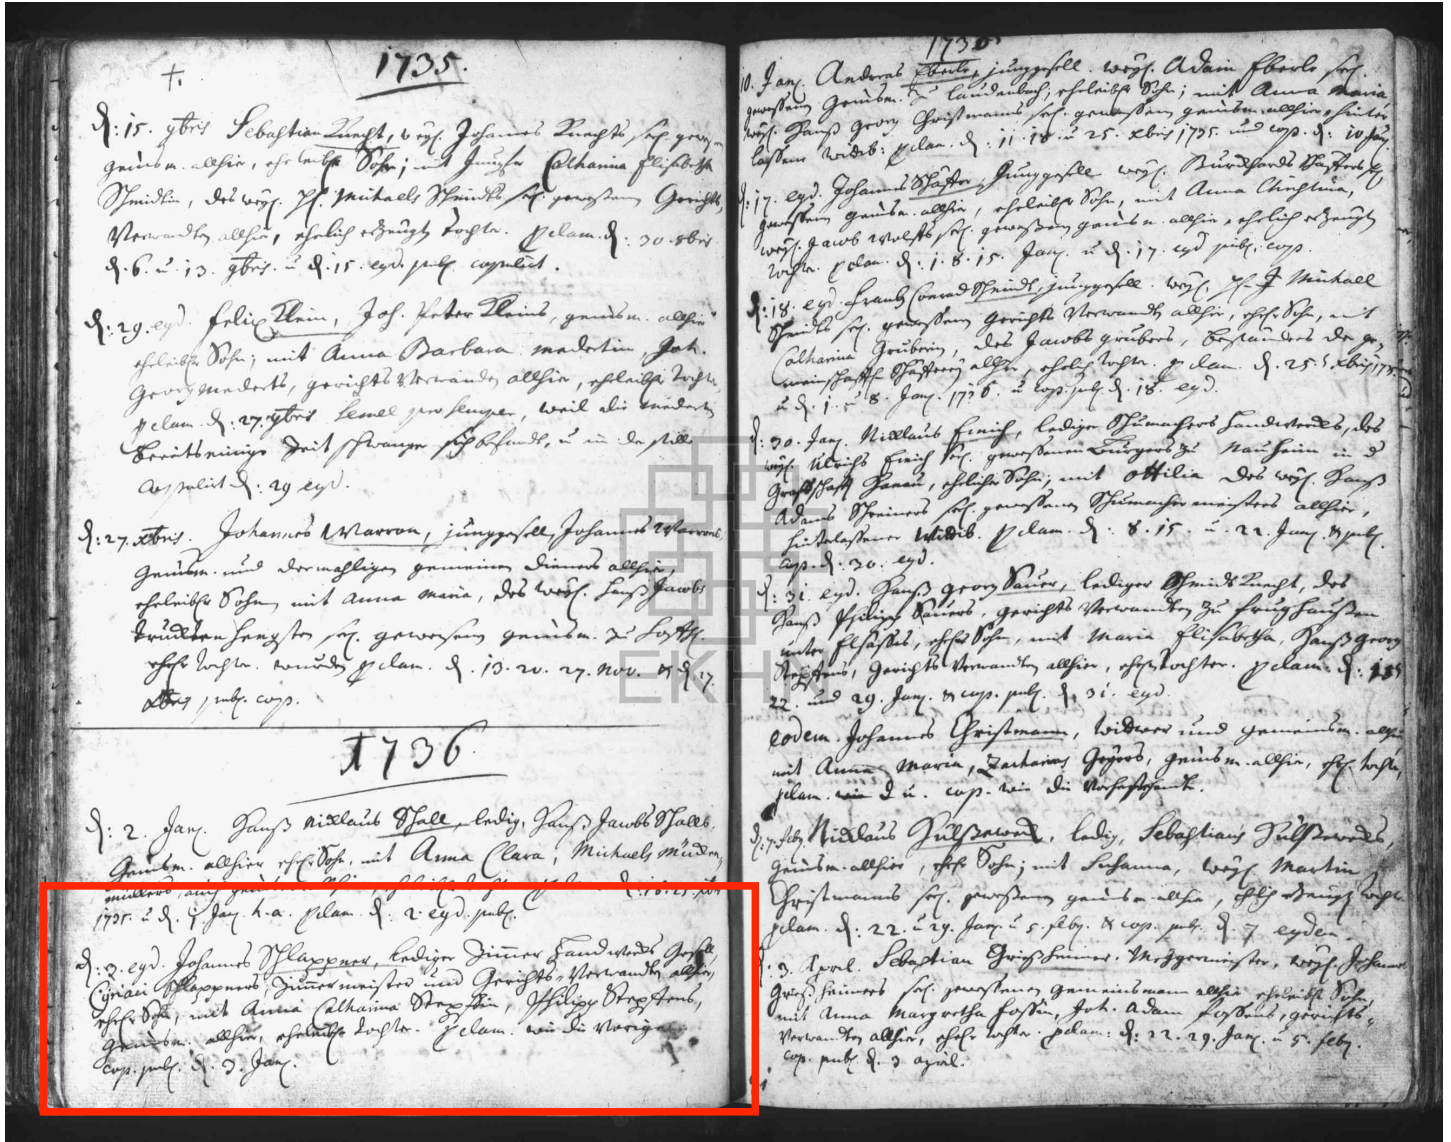 1735.
d: 15. 9bris Sebastian Knecht, weyl. Johannes Knechts sel. gewes.
gemsm. allhier, eheleibl. Sohn; mit Jungfr Catharina Elisabetha
Schmidtin, des weyl. H. Michaels Schmidts sel. gewesenen Gerichts
Verwandten allhier, ehelich erzeugte Tochter. pclam. d: 30. 8bris
d. 6. u. 13. 9bris. u. d. 15. eyd. publ. copulirt.
d: 29. eyd. Felix Klein, Joh. Peter Kleins, gemsm. allhier
eheleibl. Sohn; mit Anna Barbara Medertin, Joh.
Georg Mederts, gerichts Verwanden allhier, eheleibl. Tochter,
pclam. d. 27. 9bris semel pro semper, weil die Mederten
bereits einige Zeit schwanger sich befindt, u. in der stille
copulirt d. 29 eyd.
d: 27. Xbris. Johannes Warron, junggesell, Johannes Warrons
gemsm. und dermahligen gemeinen dieners allhier,
eheleibl. Sohn mit Anna Maria, des weyl. Hanß Jacobs
sel. gewesenen gemsm. zu
ehel. Tochter. wurden pclam. d. 13. 20. 27. Nov. & d. 27.
Xbris publ. cop.
1736.
d: 2. Jan. Hanß Nicklaus Schall, ledig, Hanß Jacobs Schalls,
gemsm. allhier ehel. Sohn, mit Anna Clara, Michaels
d. 18. 25. Xbr
1735. u. d. 1 Jan. h.a. pclam. d. 2 eyd. publ.
d: 3. eyd. Johannes Schlappner, lediger Zimmer Handwercks Gesell
Cyriaci Schlappners, Zimmermeister und Gerichts-Verwandten allhier,
ehel. Sohn, mit Anna Catharina Stepffin, Philipp Stepffens,
gemsm. allhier, eheleibl. Tochter. pclam. wie die Vorigen
cop. publ. d. 3. Jan.
1736
10. Jan. Andreas Eberle, junggesell weyl. Adam Eberle sel.
gewesenen gemsm. zu Laudenbach, eheleibl. Sohn; mit Anna Maria
weyl. Hanß Georg Christmanns sel. gewesenen gemsm. allhier, hinter
lassene Wittib: pclam. d. 11. 18. u. 25. Xbris 1735. und cop. d. 10 Jan.
d: 17. eyd. Johannes Schäffer, Junggesell weyl. Burckhards Schäffers sel.
gewesenen gemsm. allhier, eheleibl. Sohn, mit Anna Christina,
weyl. Jacob Wolffs sel. gewesenen gemsm. allhier, ehelich erzeugte
Tochter. pclam. d. 1. 8. 15. Jan. u. d. 17. eyd publ. cop.
d: 18. eyd. Frantz Conrad Schmidt, junggesell weyl. H. J Michaell
Schmidts sel. gewesenen Gerichts Verwandten allhier, ehel. Sohn, mit
Catharina Gruberin, des Jacobs grubers, Beständers der ge
meinschafftl. Schäfferey allhier, ehelich Tochter. pclam. d. 25. Xbris 1735
u. d. 1. u. 8. Jan. 1736. u. cop. publ. d. 18. eyd.
d: 30. Jan. Nicklaus Emich, lediger Schumachers Handwercks, des
weyl. Ulrichs Emich sel. gewesenen Burgers zu Nauheim in d
Graffschafft Hanau, ehelicher Sohn; mit Ottilia des weyl. Hanß
Adams Schreiners sel. gewesenen Schumachermeisters allhier,
hinterlassener Wittib. pclam. d. 8. 15. u. 22. Jan. & publ.
cop. d. 30. eyd.
d: 31. eyd. Hanß Georg Sauer, lediger Schmidt Knecht, des
Hanß Philipp Sauers, gerichts Verwandten zu
unter Elsasses, ehel. Sohn, mit Maria Elisabetha, Hanß Georg
Stepffens, Gerichts Verwandten allhier, ehel. Tochter. pclam. d. 15
22. und 29. Jan. & cop. publ. d. 31. eyd.
eodem Johannes Christmann, Wittwer und gemeinsm. allhier
mit Anna Maria, Zacharias Geyers, gemsm. allhier, ehel. Tochter,
pclam. wie d u. cop. wie die
d: 7. Feb. Nicklaus ledig, Sebastians
gemsm. allhier, ehel. Sohn; mit Johanna, weyl. Martin
Christmanns sel. gewesenen gemsm. allhier, ehlich erzeugte Tochter
pclam. d: 22. u. 29. Jan. u. 5. Feb. & cop. publ. d. 7 eyden.
d: 3. April. Sebastian Griesheimer, Metzgermeister, weyl. Johann
Griesheimers sel. gewesenen gemeinsmann allhier eheleibl. Sohn,
mit Anna Margretha Fossin, Joh. Adam Fossens, gerichts-
Verwandten allhier, ehel. Tochter. pclam: d. 22. 29. Jan. u. 5. Feb.
cop. publ. d. 3 april.
EKH